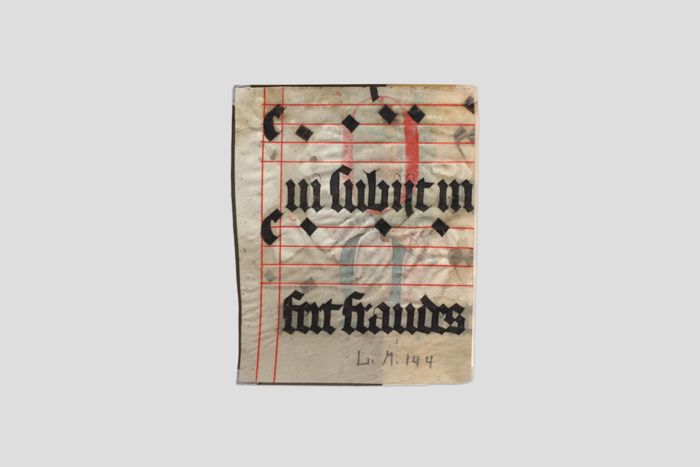 in subijt in
fert fraudes
L. M. 144